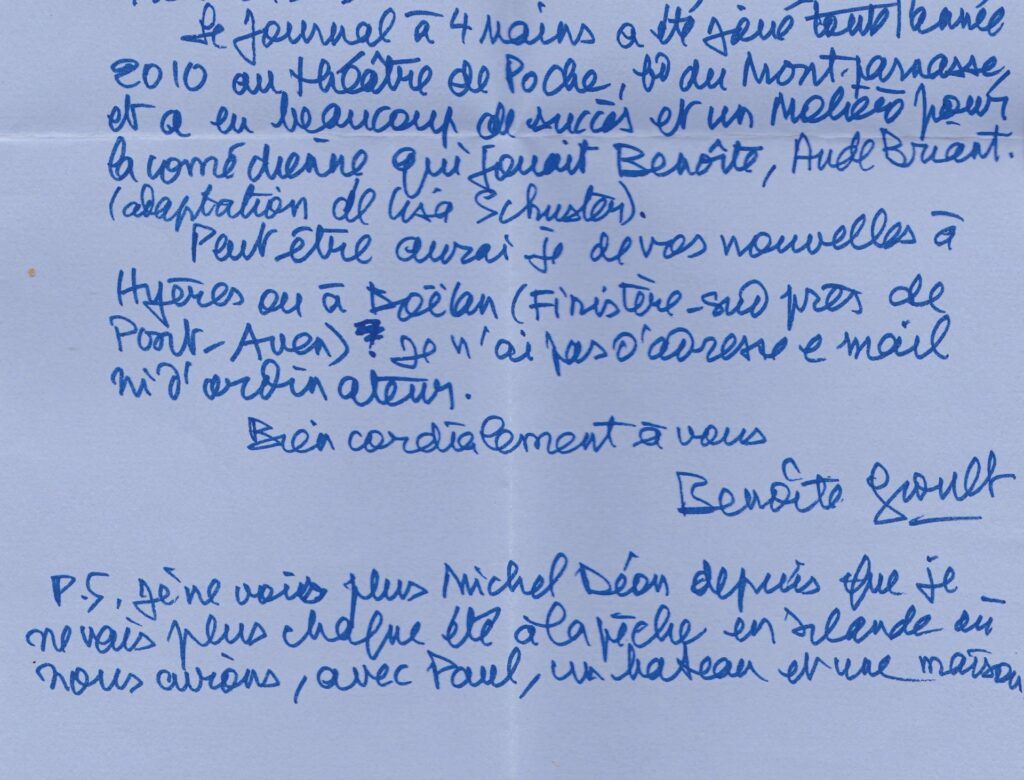 Le Journal à 4 mains a été joué tout l'année
2010 au théâtre de Poche, bd du Mont-parnasse,
et a eu beaucoup de succès et un Molière pour
la comédienne qui jouait Benoîte, Aude Briant.
(adaptation de Lisa Schuster).
Peut être aurai je de vos nouvelles à
Hyères ou à Doëlan (Finistère-sud près de
Pont-Aven)? Je n'ai pas d'adresse e mail
ni d'ordinateur.
Bien cordialement à vous
Benoîte Groult
P.S. Je ne vois plus Michel Déon depuis que je
ne vais plus chaque été à la pêche en Irlande où
nous avions, avec Paul, un bateau et une maison